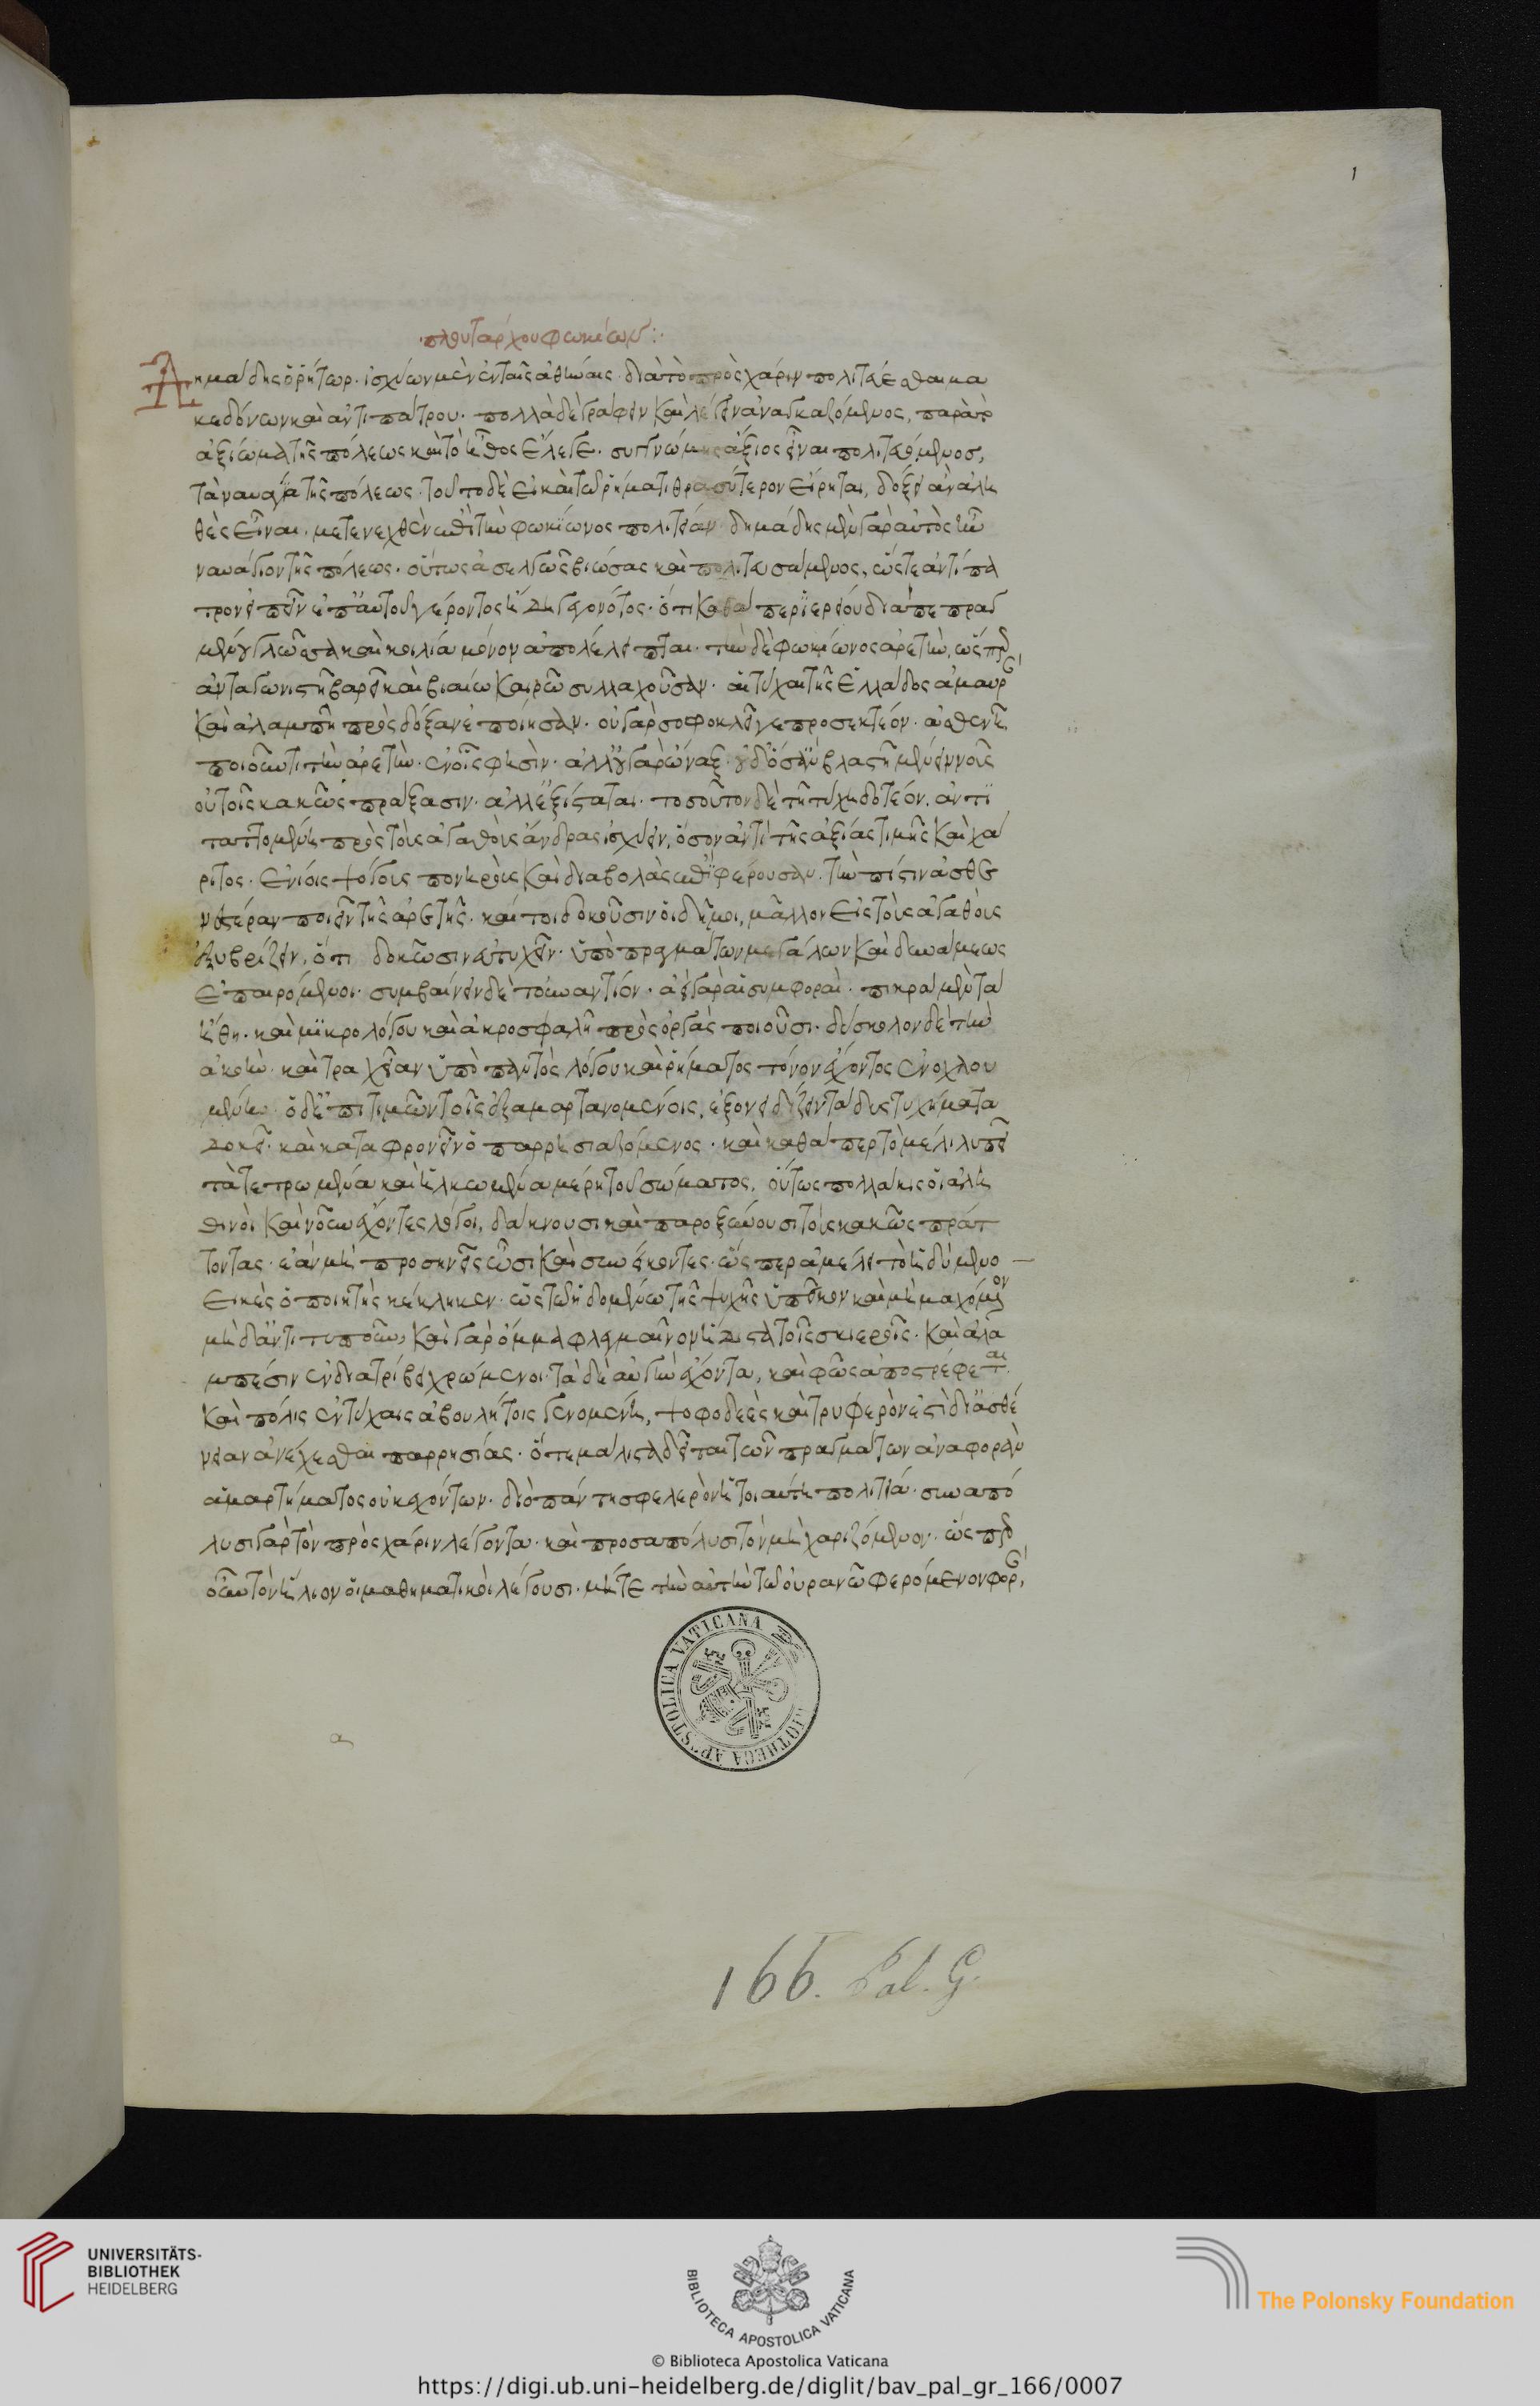 1
πλουτάρχου φωκίων:
Δημάδης ὁ ῥήτωρ. ἰσχύων μὲν ἐν ταῖς ἀθήναις διὰ τὸ πρὸς χάριν πολιτεύεσθαι μα
κεδόνων καὶ ἀντιπάτρου. πολλὰ δὲ γράφειν καὶ λέγειν ἀναγκαζόμενος, παρὰ τὸ
ἀξίωμα τῆς πόλεως καὶ τὸ ἦθος ἔλεγε. συγγνώμης ἄξιος εἶναι πολιτευόμενος,
τὰ ναυάγια τῆς πόλεως. τοῦτο δὲ εἰ καὶ τῷ ῥήματι θρασύτερον εἴρηται, δόξει ἂν ἀλη
θὲς εἶναι. μετενεχθὲν ἐπὶ τὴν φωκίωνος πολιτείαν. δημάδης μὲν γὰρ αὐτὸς ἦν
ναυάγιον τῆς πόλεως. οὕτως ἀσελγῶς βιώσας καὶ πολιτευσάμενος, ὥστε ἀντίπα
τρον εἰπεῖν ἐπ' αὐτοῦ γέροντος ἤδη γεγονότος. ὅτι καθάπερ ἱερείου διαπεπραγ
μένου γλῶσσα καὶ κοιλία μόνον ἀπολείπεται. τὴν δὲ φωκίωνος ἀρετὴν, ὥσπερ
ἀνταγωνιστῇ βαρεῖ καὶ βιαίῳ καιρῷ συλλαχοῦσαν. αἱ τύχαι τῆς ἑλλάδος ἀμαυρὰ
καὶ ἀλαμπῆ πρὸς δόξαν ἐποίησαν. οὐ γὰρ σοφοκλεῖ γε προσεκτέον. ἀσθενῆ
ποιοῦντι τὴν ἀρετὴν. ἐν οἷς φησὶν. ἀλλ' οὐ γὰρ ὦναξ οὐδ' ὃς ἂν βλάστῃ μένει νοῦς
οὐ τοῖς κακῶς πράξασιν. ἀλλ' ἐξίσταται. τοσοῦτον δὲ τῇ τύχῃ δοτέον. ἀντι
ταττομένῃ πρὸς τοὺς ἀγαθοὺς ἄνδρας ἰσχύειν, ὅσον ἀντὶ τῆς ἀξίας τιμῆς καὶ χά
ριτος. ἐνίοις ψόγους πονηροὺς καὶ διαβολὰς ἐπιφέρουσαν. τὴν πίστιν ἀσθε
νεστέραν ποιεῖν τῆς ἀρετῆς. καί τοι δοκοῦσιν οἱ δῆμοι, μᾶλλον εἰς τοὺς ἀγαθοὺς
ἐξυβρίζειν, ὅτι δοκῶσιν εὐτυχεῖν. ὑπὸ πραγμάτων μεγάλων καὶ δυνάμεως
ἐπαιρόμενοι. συμβαίνει δὲ τοὐναντίον. ἀεὶ γὰρ αἱ συμφοραὶ. πικρὰ μὲν τὰ
ἤθη. καὶ μικρολόγου καὶ ἀκροσφαλῆ πρὸς ὀργὰς ποιοῦσι. δύσκολον δὲ τὴν
ἀκοὴν. καὶ τραχεῖαν ὑπὸ παντὸς λόγου καὶ ῥήματος τόνον ἔχοντος ἐνοχλου
μένην. ὁ δ' ἐπιτιμῶν τοῖς ἐξαμαρτανομένοις, ἐξονειδίζειν τὰ δυστυχήματα
δοκεῖ. καὶ καταφρονεῖν ὁ παρρησιαζόμενος. καὶ καθάπερ τὸ μέλι λυπεῖ
τὰ τετρωμένα καὶ ἡλκωμένα μέρη τοῦ σώματος, οὕτως πολλάκις οἱ ἀλη
θινοὶ καὶ νοῦν ἔχοντες λόγοι, δάκνουσι καὶ παροξύνουσι τοὺς κακῶς πράτ
τοντας. ἐὰν μὴ προσηνεῖς ὦσι καὶ συνείκοντες. ὥσπερ ἀμέλει τὸ ἡδὺ μενο
εικὲς ὁ ποιητὴς κέκληκεν. ὡς τῷ ἡδομένῳ τῆς ψυχῆς ὑπεῖκον καὶ μὴ μαχόμενον
μηδ' ἀντιτυποῦν, καὶ γὰρ ὄμμα φλεγμαῖνον ἥδιστα τοῖς σκιεροῖς. καὶ ἀλα
μπέσιν ἐνδιατρίβει χρώμενοι. τὰ δὲ αὐγὴν ἔχοντα, καὶ φῶς ἀποστρέφεται.
καὶ πόλις ἐν τύχαις ἀβουλήτοις γενομένη, ψοφοδεὲς καὶ τρυφερόν ἐστι δι' ἀσθέ
νειαν ἀνέχεσθαι παρρησίας. ὅτε μάλιστα δεῖται τῶν πραγμάτων ἀναφορὰν
ἁμαρτήματος οὐκ ἐχόντων. διὸ πάντῃ σφαλερὸν ἡ τοιαύτη πολιτεία. συναπό
λυσι γὰρ τὸν πρὸς χάριν λέγοντα. καὶ προσαπόλυσι τὸν μὴ χαριζόμενον. ὥσπερ
οὖν τὸν ἥλιον οἱ μαθηματικοὶ λέγουσι. μήτε τὴν αὐτὴν τῷ οὐρανῷ φερόμενον φορὰν,
α
BIBLIOTHECA APOSTOLICA VATICANA
166. Pal. G.
UNIVERSITÄTS-
BIBLIOTHEK
HEIDELBERG
BIBLIOTECA APOSTOLICA VATICANA
The Polonsky Foundation
© Biblioteca Apostolica Vaticana
https://digi.ub.uni-heidelberg.de/diglit/bav_pal_gr_166/0007